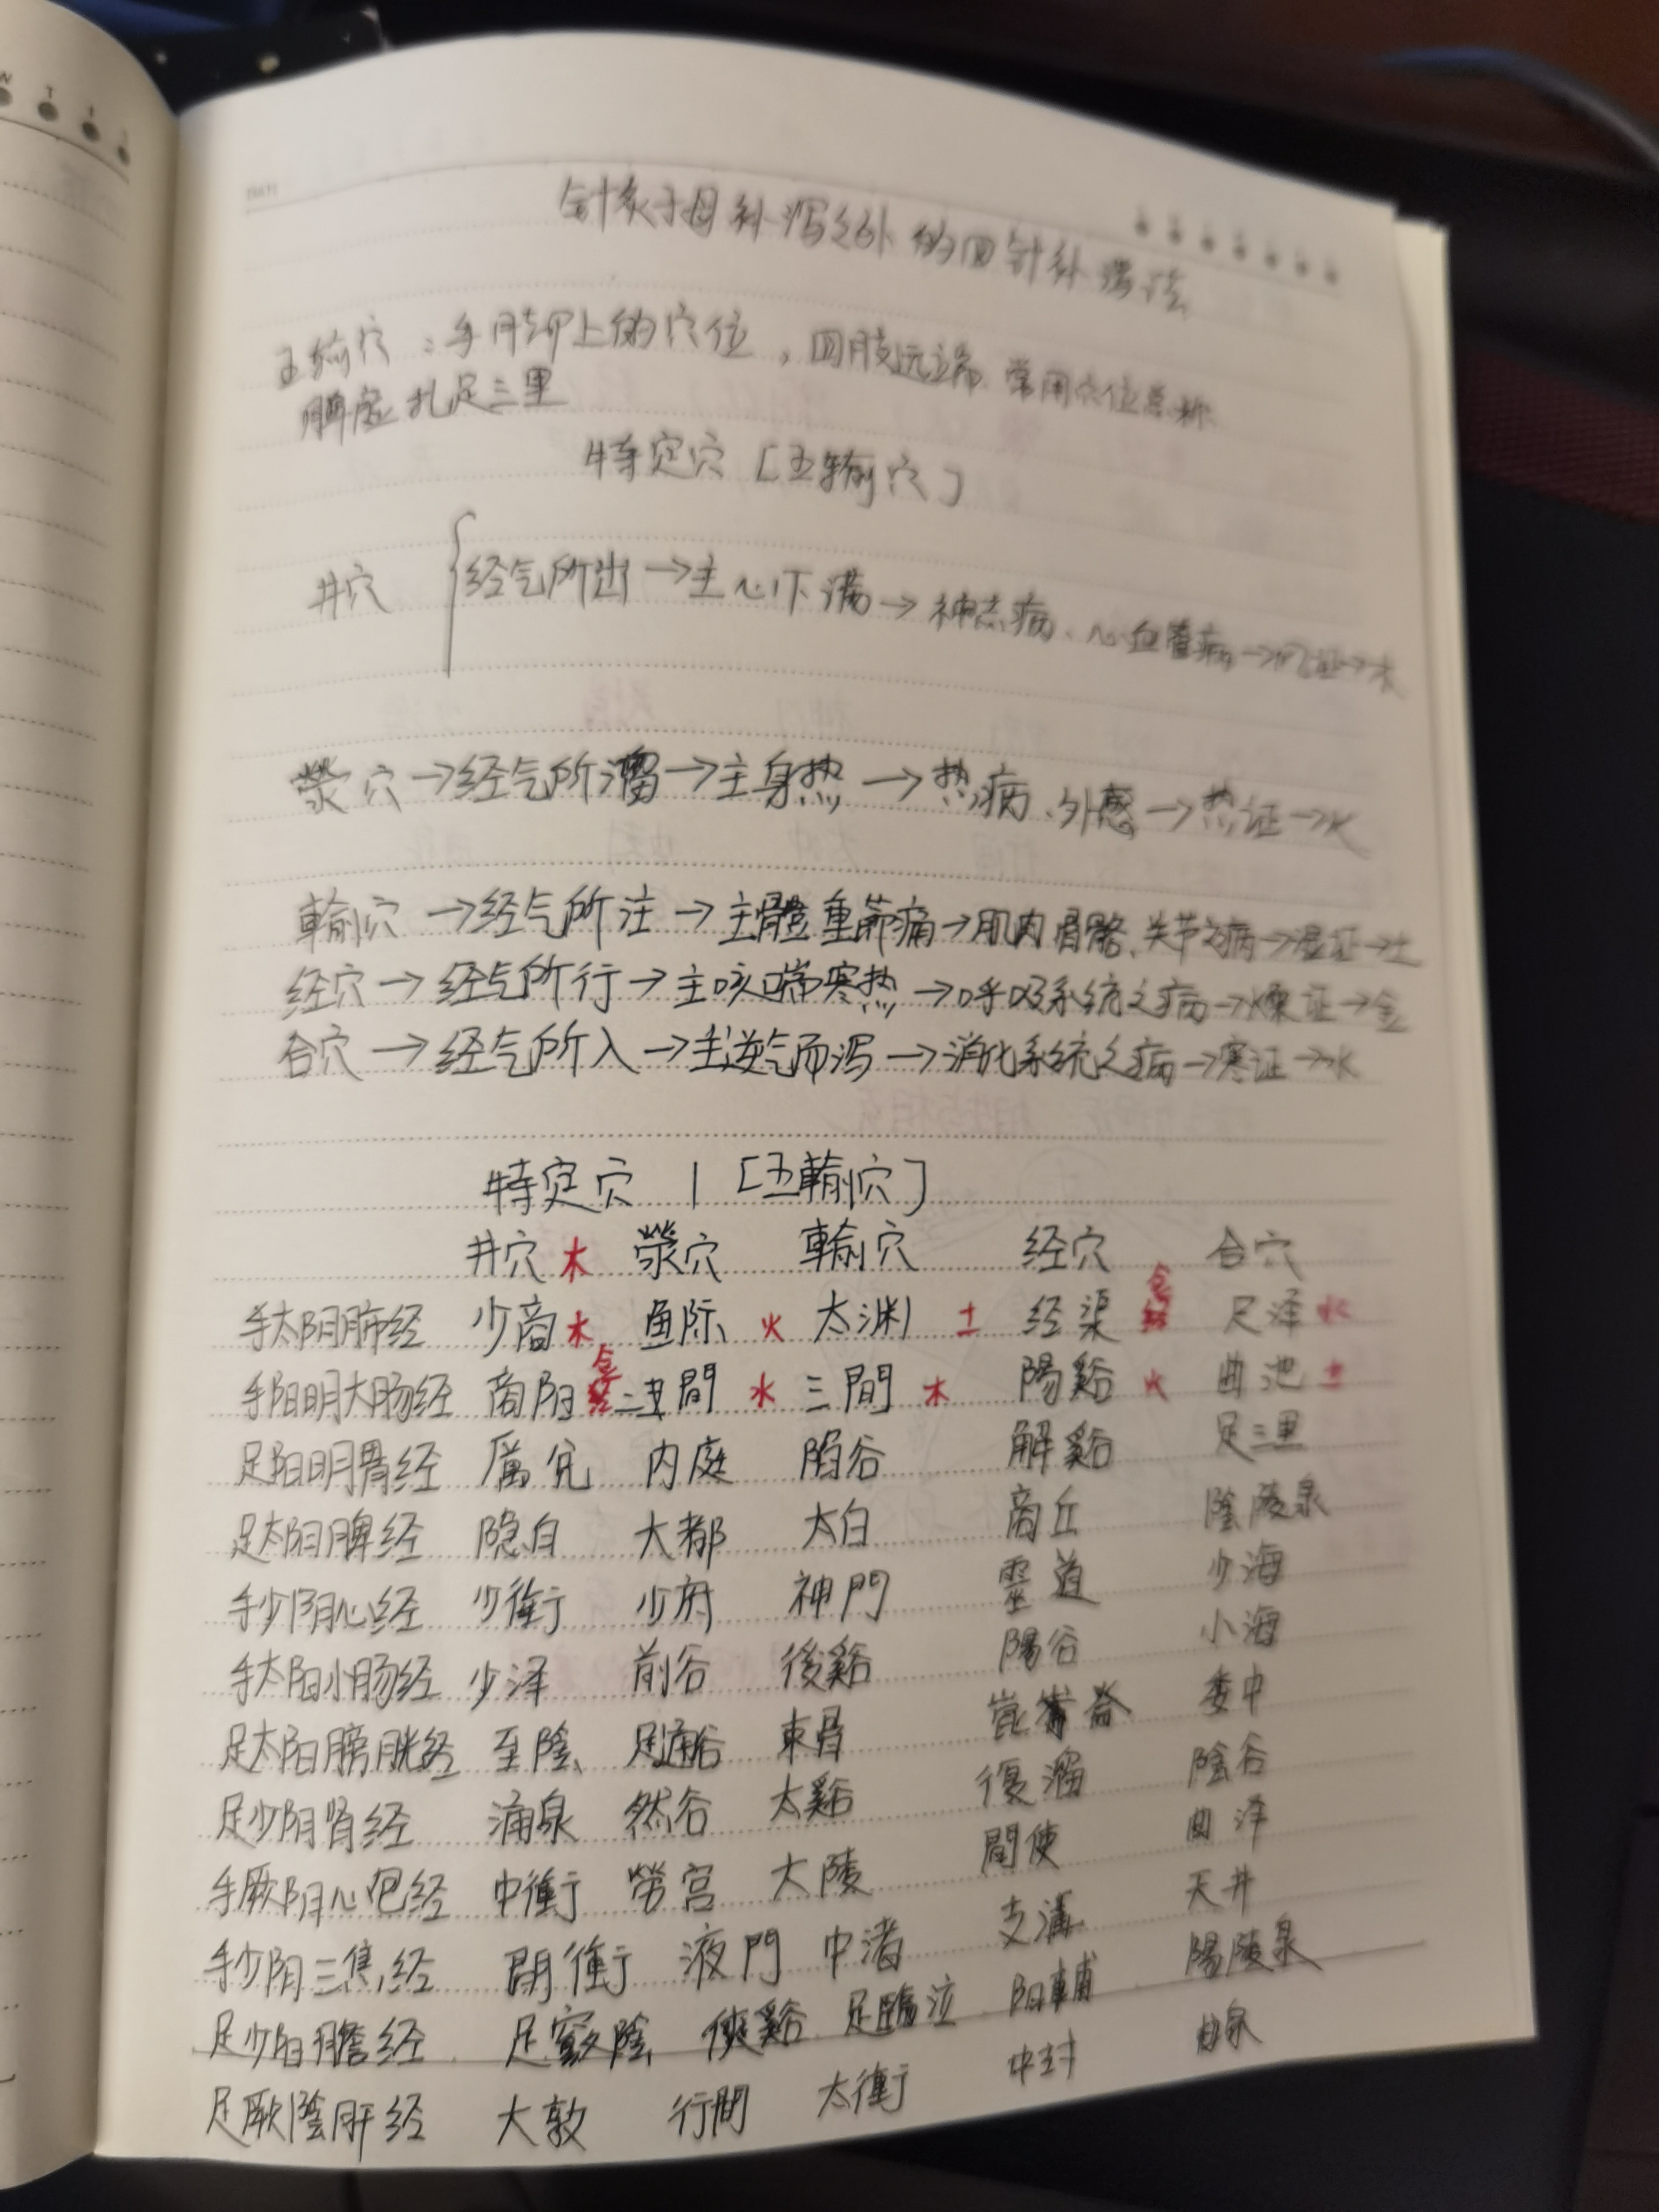 针灸子母补泻之外的四针补泻法
五输穴：手肘部上的穴位，四肢远端常用穴位总称
脾虚扎足三里
特定穴［五输穴］
井穴 { 经气所出→主心下满→神志病、心血管病→风证→木
荥穴→经气所溜→主身热→热病、外感→热证→火
輸穴→经气所注→主體重節痛→肌肉骨骼、关节之病→湿证→土
经穴→经气所行→主咳喘寒热→呼吸系统之病→燥证→金
合穴→经气所入→主逆气而泻→消化系统之病→寒证→水
特定穴 | ［五輸穴］
井穴 木 荥穴 輸穴 经穴 合穴
手太阴肺经 少商 木 鱼际 火 太渊 土 经渠 金 尺泽 水
手阳明大肠经 商阳 金 二間 水 三間 木 陽谿 火 曲池 土
足阳明胃经 厲兑 内庭 陷谷 解谿 足三里
足太阴脾经 隐白 大都 太白 商丘 陰陵泉
手少阴心经 少衝 少府 神門 靈道 少海
手太阳小肠经 少泽 前谷 後谿 陽谷 小海
足太阳膀胱经 至陰 足通谷 束骨 崑崙 委中
足少阴肾经 涌泉 然谷 太谿 復溜 陰谷
手厥阴心包经 中衝 勞宫 大陵 間使 曲泽
手少阳三焦经 關衝 液門 中渚 支溝 天井
足少阳膽经 足竅陰 俠谿 足臨泣 阳輔 陽陵泉
足厥陰肝经 大敦 行間 太衝 中封 曲泉